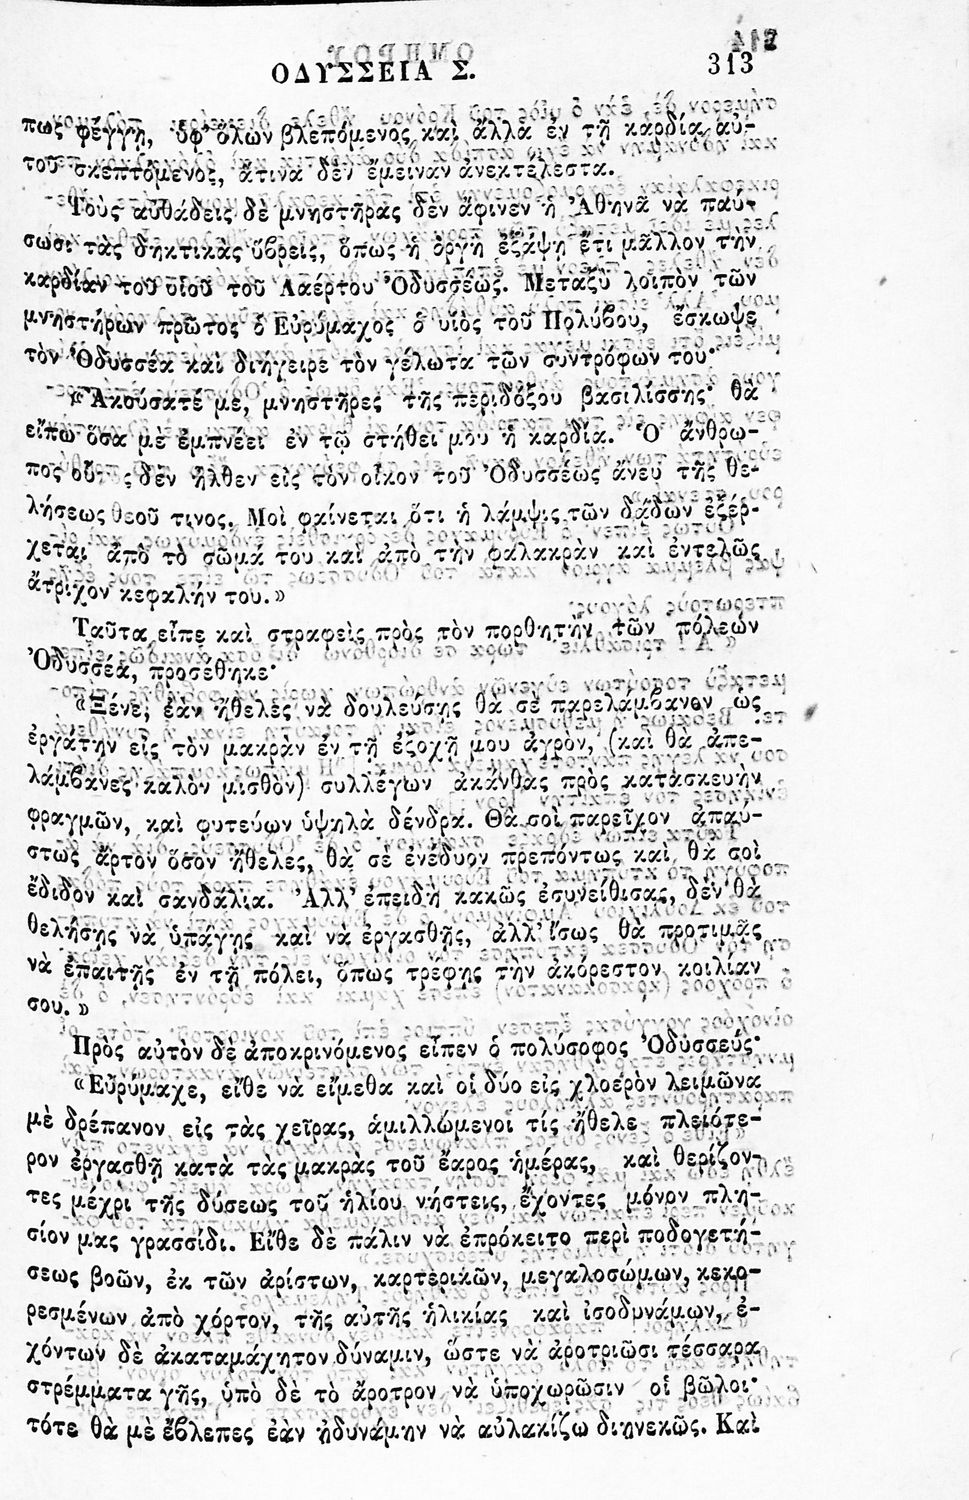 ΟΔΥΣΣΕΙΑ Σ. 313
πως φέγγῃ, ὑφ' ὅλων βλεπόμενος, καὶ ἄλλα ἐν τῇ καρδίᾳ αὑ-
τοῦ σκεπτόμενος, ἅτινα δὲν ἔμειναν ἀνεκτέλεστα.
Τοὺς αὐθάδεις δὲ μνηστῆρας δὲν ἄφινεν ἡ Ἀθηνᾶ νὰ παύ-
σωσι τὰς δηκτικὰς ὕβρεις, ὅπως ἡ ὀργὴ ἐξάψῃ ἔτι μᾶλλον τὴν
καρδίαν τοῦ υἱοῦ τοῦ Λαέρτου Ὀδυσσέως. Μεταξὺ λοιπὸν τῶν
μνηστήρων πρῶτος ὁ Εὐρύμαχος ὁ υἱὸς τοῦ Πολύβου, ἔσκωψε
τὸν Ὀδυσσέα καὶ διήγειρε τὸν γέλωτα τῶν συντρόφων του·
«Ἀκούσατέ με, μνηστῆρες τῆς περιδόξου βασιλίσσης· θὰ
εἴπω ὅσα μὲ ἐμπνέει ἐν τῷ στήθει μου ἡ καρδία. Ὁ ἄνθρω-
πος οὗτος δὲν ἦλθεν εἰς τὸν οἶκον τοῦ Ὀδυσσέως ἄνευ τῆς θε-
λήσεως θεοῦ τινος. Μοὶ φαίνεται ὅτι ἡ λάμψις τῶν δᾴδων ἐξέρ-
χεται ἀπὸ τὸ σῶμά του καὶ ἀπὸ τὴν φαλακρὰν καὶ ἐντελῶς
ἄτριχον κεφαλήν του.»
Ταῦτα εἶπε καὶ στραφεὶς πρὸς τὸν πορθητὴν τῶν πόλεων
Ὀδυσσέα, προσέθηκε·
«Ξένε, ἐὰν ἤθελες νὰ δουλεύσῃς θὰ σὲ παρελάμβανον ὡς
ἐργάτην εἰς τὸν μακρὰν ἐν τῇ ἐξοχῇ μου ἀγρὸν, (καὶ θὰ ἀπε-
λάμβανες καλὸν μισθὸν) συλλέγων ἀκάνθας πρὸς κατασκευὴν
φραγμῶν, καὶ φυτεύων ὑψηλὰ δένδρα. Θὰ σοὶ παρεῖχον ἀπαύ-
στως ἄρτον ὅσον ἤθελες, θὰ σὲ ἐνέδυον πρεπόντως καὶ θὰ σοὶ
ἔδιδον καὶ σανδάλια. Ἀλλ' ἐπειδὴ κακῶς ἐσυνείθισας, δὲν θὰ
θελήσῃς νὰ ὑπάγῃς καὶ νὰ ἐργασθῇς, ἀλλ' ἴσως θὰ προτιμᾷς
νὰ ἐπαιτῇς ἐν τῇ πόλει, ὅπως τρέφῃς τὴν ἀκόρεστον κοιλίαν
σου.»
Πρὸς αὐτὸν δὲ ἀποκρινόμενος εἶπεν ὁ πολύσοφος Ὀδυσσεύς·
«Εὐρύμαχε, εἴθε νὰ εἴμεθα καὶ οἱ δύο εἰς χλοερὸν λειμῶνα
μὲ δρέπανον εἰς τὰς χεῖρας, ἁμιλλώμενοι τίς ἤθελε πλειότε-
ρον ἐργασθῇ κατὰ τὰς μακρὰς τοῦ ἔαρος ἡμέρας, καὶ θερίζον-
τες μέχρι τῆς δύσεως τοῦ ἡλίου νήστεις, ἔχοντες μόνον πλη-
σίον μας γρασσίδι. Εἴθε δὲ πάλιν νὰ ἐπρόκειτο περὶ ποδογετή-
σεως βοῶν, ἐκ τῶν ἀρίστων, καρτερικῶν, μεγαλοσώμων, κεκο-
ρεσμένων ἀπὸ χόρτον, τῆς αὐτῆς ἡλικίας καὶ ἰσοδυνάμων, ἐ-
χόντων δὲ ἀκαταμάχητον δύναμιν, ὥστε νὰ ἀροτριῶσι τέσσαρα
στρέμματα γῆς, ὑπὸ δὲ τὸ ἄροτρον νὰ ὑποχωρῶσιν οἱ βῶλοι·
τότε θὰ μὲ ἔβλεπες ἐὰν ἠδυνάμην νὰ αὐλακίζω διηνεκῶς. Καὶ